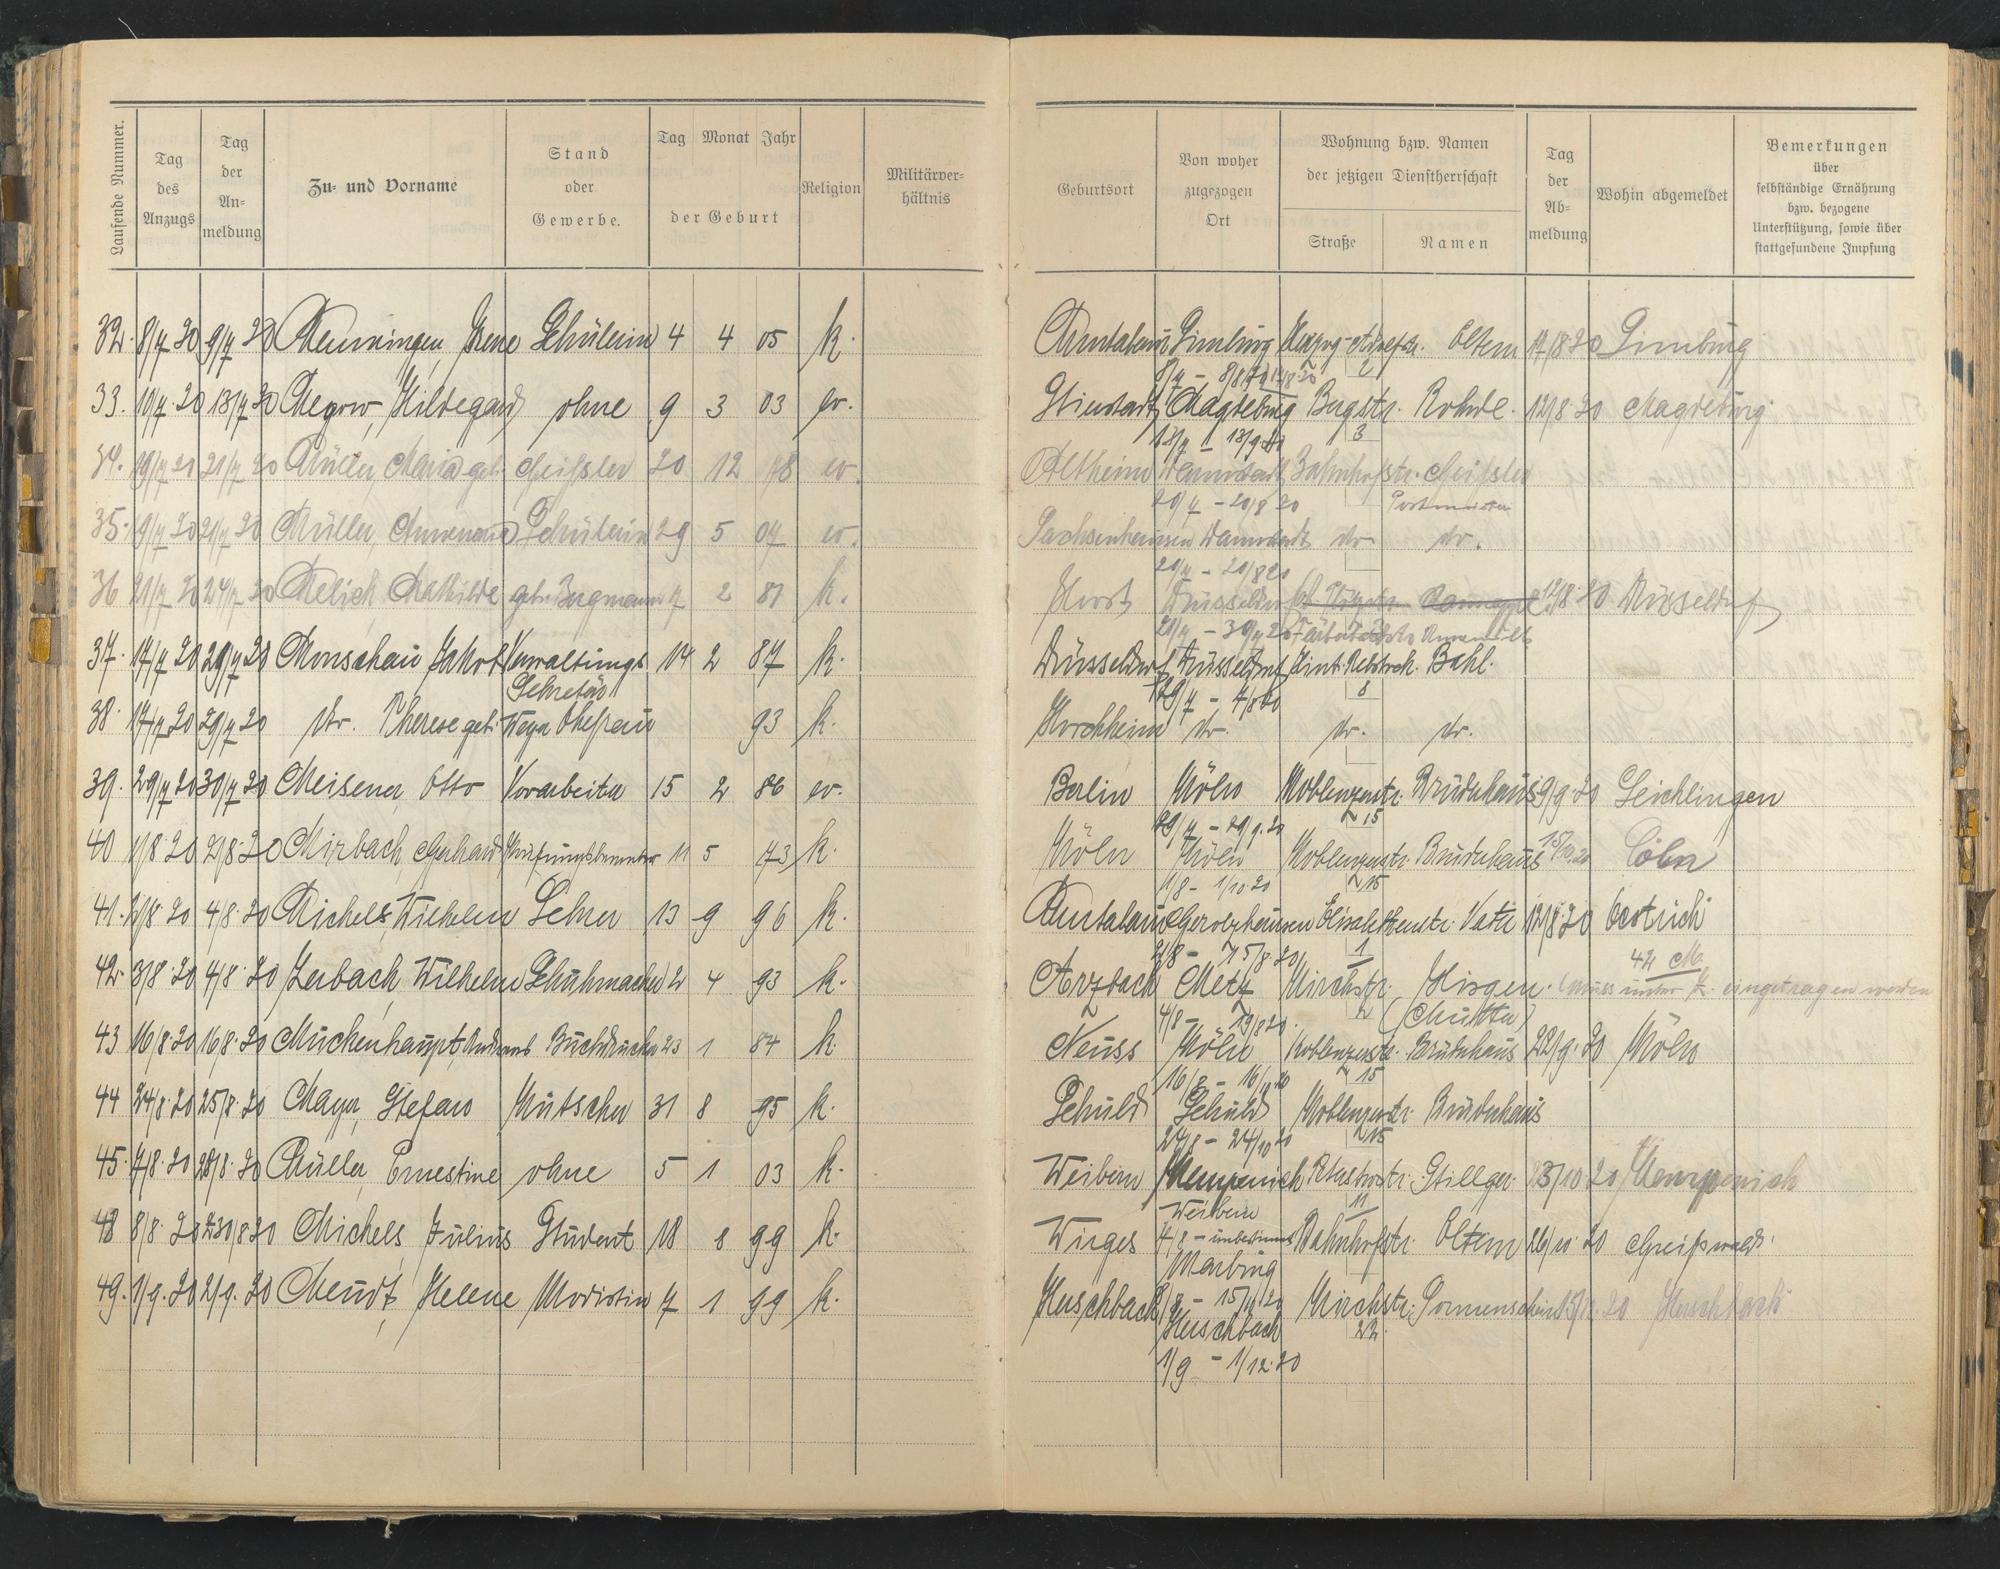 Laufende Nummer.
Tag des Anzugs
Tag der An-meldung
Zu- und Vorname
Stand oder Gewerbe.
Tag Monat Jahr
der Geburt
Religion
Militärver-hältnis
Geburtsort
Von woher zugezogen Ort
Wohnung bzw. Namen der jetzigen Dienstherrschaft
Straße
Namen
Tag der Ab-meldung
Wohin abgemeldet
Bemerkungen über selbständige Ernährung bzw. bezogene Unterstützung, sowie über stattgefundene Impfung
32. 8/7 20 9/7 20 Menningen, Irene Schülerin 4 4 05 k. Montabaur Limburg Eltern 17/8 20 Limburg
2
33. 10/7 20 13/7 20 Megow, Hildegard ohne 9 3 03 ev. Magdeburg Bergstr. Rohde. 12/8 20 Magdeburg
3
34. 19/7 20 21/7 20 Müller, Maria geb. Meißler 20 12 78 ev. Altheim Darmstadt Bahnhofstr. Meißler
20/7 – 20/8 20
35. 19/7 20 21/7 20 Müller, Annemarie Schülerin 29 5 04 ev. Sachsenhausen Darmstadt do do.
20/7 – 20/8 20
36 21/7 20 24/7 20 Mathilde geb. Bergmann 7 2 81 k. Horst Düsseldorf 12/8 20 Düsseldorf
37. 17/7 20 29/7 20 Monschau Jakob Verwaltungs 14 2 87 k. Düsseldorf Düsseldorf Hint. Rebstock. Bahl.
Sekretär 8
38. 17/7 20 29/7 20 do. Therese geb. Ehefrau 93 k. do. do. do.
39. 29/7 20 30/7 20 Meisener Otto Vorarbeiter 15 2 86 ev. Berlin Köln Koblenzerstr. Brüderhaus 9/9 20 Leichlingen
29/7 – 29/9. 20 15
40 1/8 20 2/8 20 Mirbach, Gerhard 11 5 73 k. Köln Köln Koblenzerstr. Brüderhaus 15/10. 20 Cöln
1/8 – 1/10 20 15
41. 2/8 20 4/8 20 Michels, Wilhelm Lehrer 13 9 96 k. Montabaur Elisabethenstr. Vater 12/8 20
2/8 – 15/8 20 1 42 M.
42. 3/8 20 4/8 20 Zerbach, Wilhelm Schuhmacher 2 4 93 k. Arzbach Metz Kirchstr. Hisgen. (muss unter Z. eingetragen werden
4/8 – 2 (Mutter)
43 16/8 20 16/8 20 Muckenhaupt, Andreas Buchdrucker 23 1 84 k. Neuss Köln Koblenzerstr. Brüderhaus 22/9. 20 Köln
16/8 – 16/10 20 15
44 24/8 20 25/8 20 Mayer, Stefan Kutscher 31 8 95 k. Schuld Schuld Koblenzerstr. Brüderhaus
24/8 – 24/10 20 15
45. 7/8 20 28/8 20 Müller, Ernestine ohne 5 1 03 k. Weibern Kempenich Stillger 23/10 20 Kempenich
Weibern 11
48 8/8 20 30/8 20 Michels, Julius Student 18 8 99 k. Wirges Bahnhofstr. Eltern 26/10 20 Greifswald.
Marburg
49. 1/9. 20 2/9. 20 Meudt, Helene Modistin 7 1 99 k. Herschbach Kirchstr. Sonnenschein Herschbach
Herschbach 22.
1/9 – 1/12 20